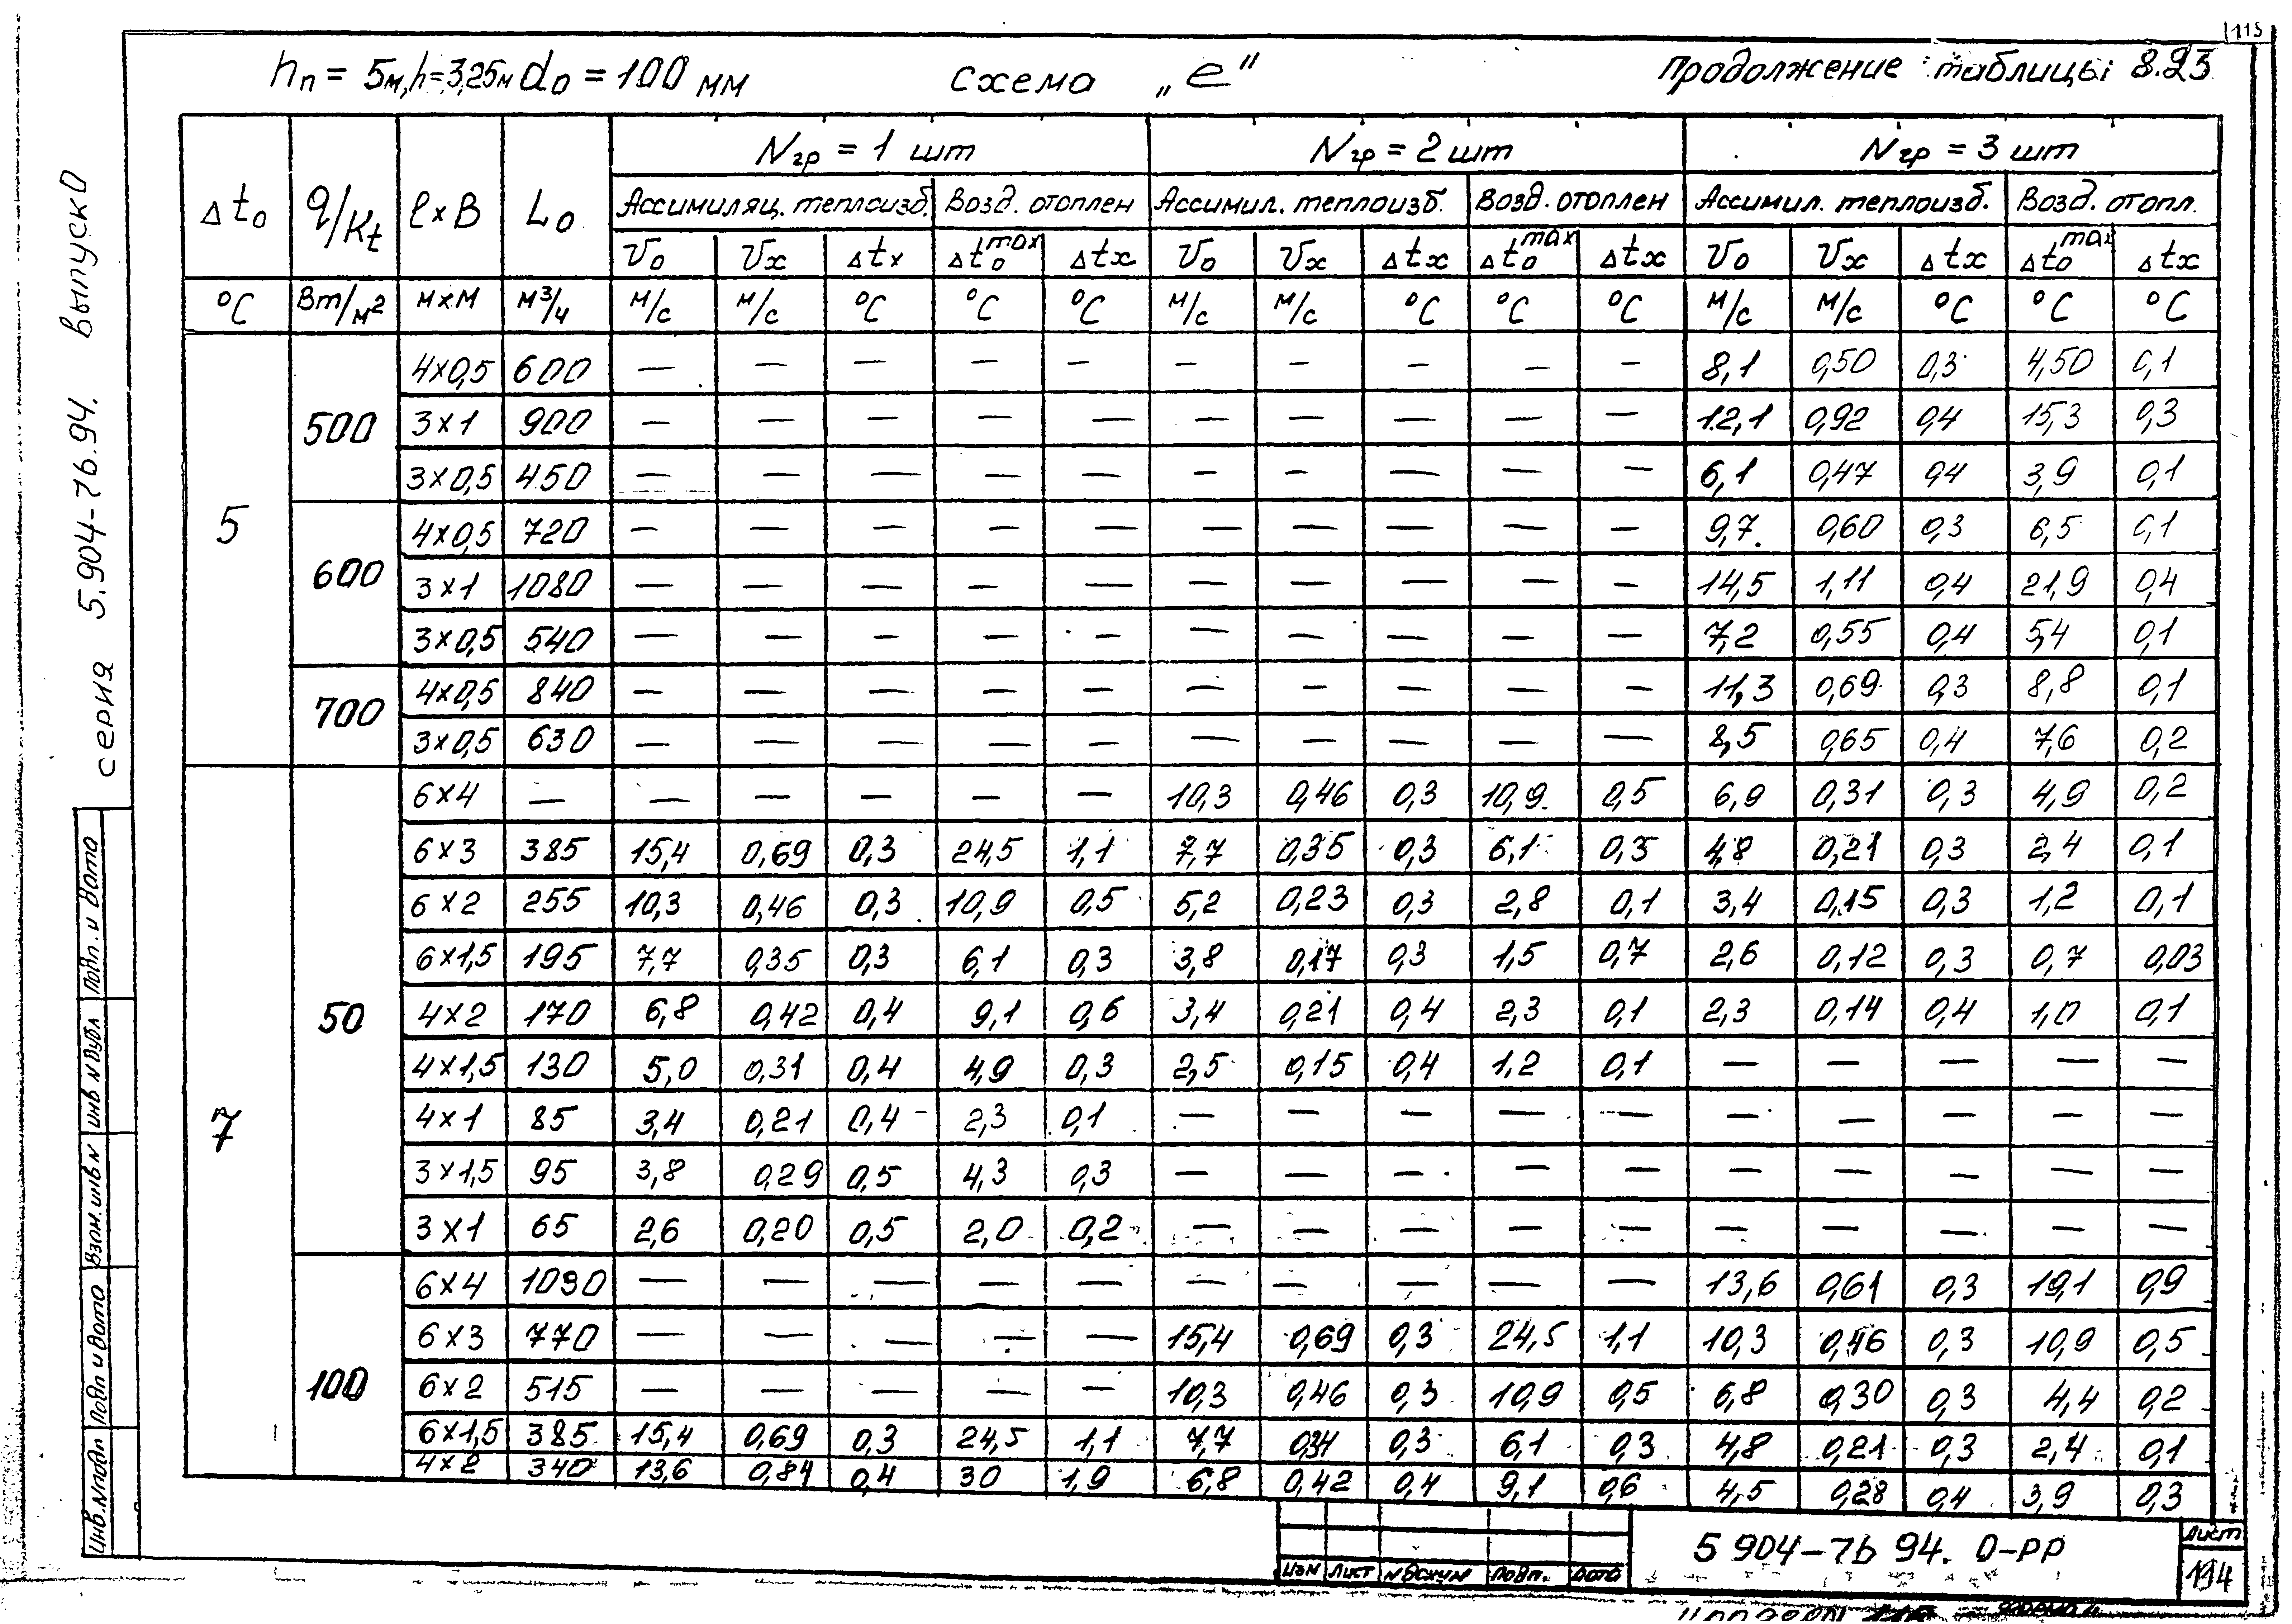 115
hп = 5м, h=3,25м do = 100 мм   схема „е"   Продолжение таблицы 8.23
Δto | q/Kt | ℓ×B | Lo | Nгр = 1 шт | Nгр = 2 шт | Nгр = 3 шт
Ассимиляц. теплоизб. | Возд. отоплен | Ассимил. теплоизб. | Возд. отоплен | Ассимил. теплоизб. | Возд. отопл.
Vo | Vx | Δtx | Δto max | Δtx | Vo | Vx | Δtx | Δto max | Δtx | Vo | Vx | Δtx | Δto max | Δtx
°C | Вт/м² | м×м | м³/ч | м/с | м/с | °C | °C | °C | м/с | м/с | °C | °C | °C | м/с | м/с | °C | °C | °C
5 | 500 | 4×0,5 | 600 | — | — | — | — | — | — | — | — | — | — | 8,1 | 0,50 | 0,3 | 4,50 | 0,1
3×1 | 900 | — | — | — | — | — | — | — | — | — | — | 12,1 | 0,92 | 0,4 | 15,3 | 0,3
3×0,5 | 450 | — | — | — | — | — | — | — | — | — | — | 6,1 | 0,47 | 0,4 | 3,9 | 0,1
600 | 4×0,5 | 720 | — | — | — | — | — | — | — | — | — | — | 9,7 | 0,60 | 0,3 | 6,5 | 0,1
3×1 | 1080 | — | — | — | — | — | — | — | — | — | — | 14,5 | 1,11 | 0,4 | 21,9 | 0,4
3×0,5 | 540 | — | — | — | — | — | — | — | — | — | — | 7,2 | 0,55 | 0,4 | 5,4 | 0,1
700 | 4×0,5 | 840 | — | — | — | — | — | — | — | — | — | — | 11,3 | 0,69 | 0,3 | 8,8 | 0,1
3×0,5 | 630 | — | — | — | — | — | — | — | — | — | — | 8,5 | 0,65 | 0,4 | 7,6 | 0,2
7 | 50 | 6×4 | — | — | — | — | — | — | 10,3 | 0,46 | 0,3 | 10,9 | 0,5 | 6,9 | 0,31 | 0,3 | 4,9 | 0,2
6×3 | 385 | 15,4 | 0,69 | 0,3 | 24,5 | 1,1 | 7,7 | 0,35 | 0,3 | 6,1 | 0,3 | 4,8 | 0,21 | 0,3 | 2,4 | 0,1
6×2 | 255 | 10,3 | 0,46 | 0,3 | 10,9 | 0,5 | 5,2 | 0,23 | 0,3 | 2,8 | 0,1 | 3,4 | 0,15 | 0,3 | 1,2 | 0,1
6×1,5 | 195 | 7,7 | 0,35 | 0,3 | 6,1 | 0,3 | 3,8 | 0,17 | 0,3 | 1,5 | 0,7 | 2,6 | 0,12 | 0,3 | 0,7 | 0,03
4×2 | 170 | 6,8 | 0,42 | 0,4 | 9,1 | 0,6 | 3,4 | 0,21 | 0,4 | 2,3 | 0,1 | 2,3 | 0,14 | 0,4 | 1,0 | 0,1
4×1,5 | 130 | 5,0 | 0,31 | 0,4 | 4,9 | 0,3 | 2,5 | 0,15 | 0,4 | 1,2 | 0,1 | — | — | — | — | —
4×1 | 85 | 3,4 | 0,21 | 0,4 | 2,3 | 0,1 | — | — | — | — | — | — | — | — | — | —
3×1,5 | 95 | 3,8 | 0,29 | 0,5 | 4,3 | 0,3 | — | — | — | — | — | — | — | — | — | —
3×1 | 65 | 2,6 | 0,20 | 0,5 | 2,0 | 0,2 | — | — | — | — | — | — | — | — | — | —
100 | 6×4 | 1030 | — | — | — | — | — | — | — | — | — | — | 13,6 | 0,61 | 0,3 | 19,1 | 0,9
6×3 | 770 | — | — | — | — | — | 15,4 | 0,69 | 0,3 | 24,5 | 1,1 | 10,3 | 0,46 | 0,3 | 10,9 | 0,5
6×2 | 515 | — | — | — | — | — | 10,3 | 0,46 | 0,3 | 10,9 | 0,5 | 6,8 | 0,30 | 0,3 | 4,4 | 0,2
6×1,5 | 385 | 15,4 | 0,69 | 0,3 | 24,5 | 1,1 | 7,7 | 0,34 | 0,3 | 6,1 | 0,3 | 4,8 | 0,21 | 0,3 | 2,4 | 0,1
4×2 | 340 | 13,6 | 0,84 | 0,4 | 30 | 1,9 | 6,8 | 0,42 | 0,4 | 9,1 | 0,6 | 4,5 | 0,28 | 0,4 | 3,9 | 0,3
серия 5.904-76.94. выпуск 0
Подп. и дата
инв N дубл
Взам. инв N
Подп и дата
Инв. N подл
Изм | Лист | N докум | Подп. | Дата
5 904-76 94. 0-РР
Лист
194